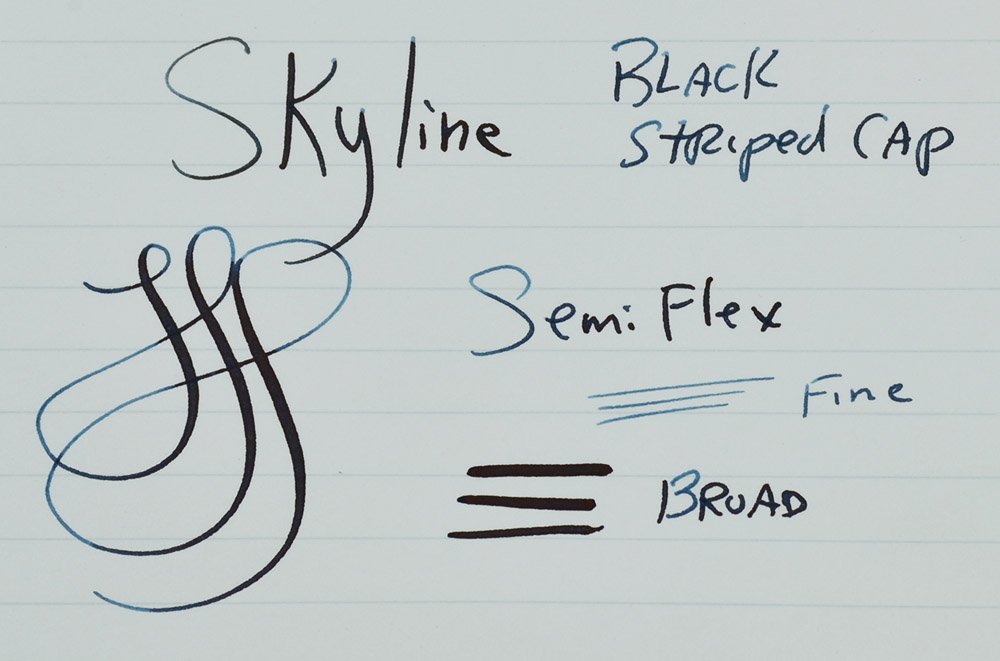 Skyline
Black
Striped Cap
Semi Flex
Fine
Broad